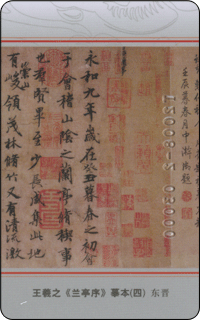 永和九年歲在癸丑暮春之初會
于會稽山陰之蘭亭脩禊事
也羣賢畢至少長咸集此地
有崇山峻領茂林脩竹又有清流激
王羲之《兰亭序》摹本(四) 东晋